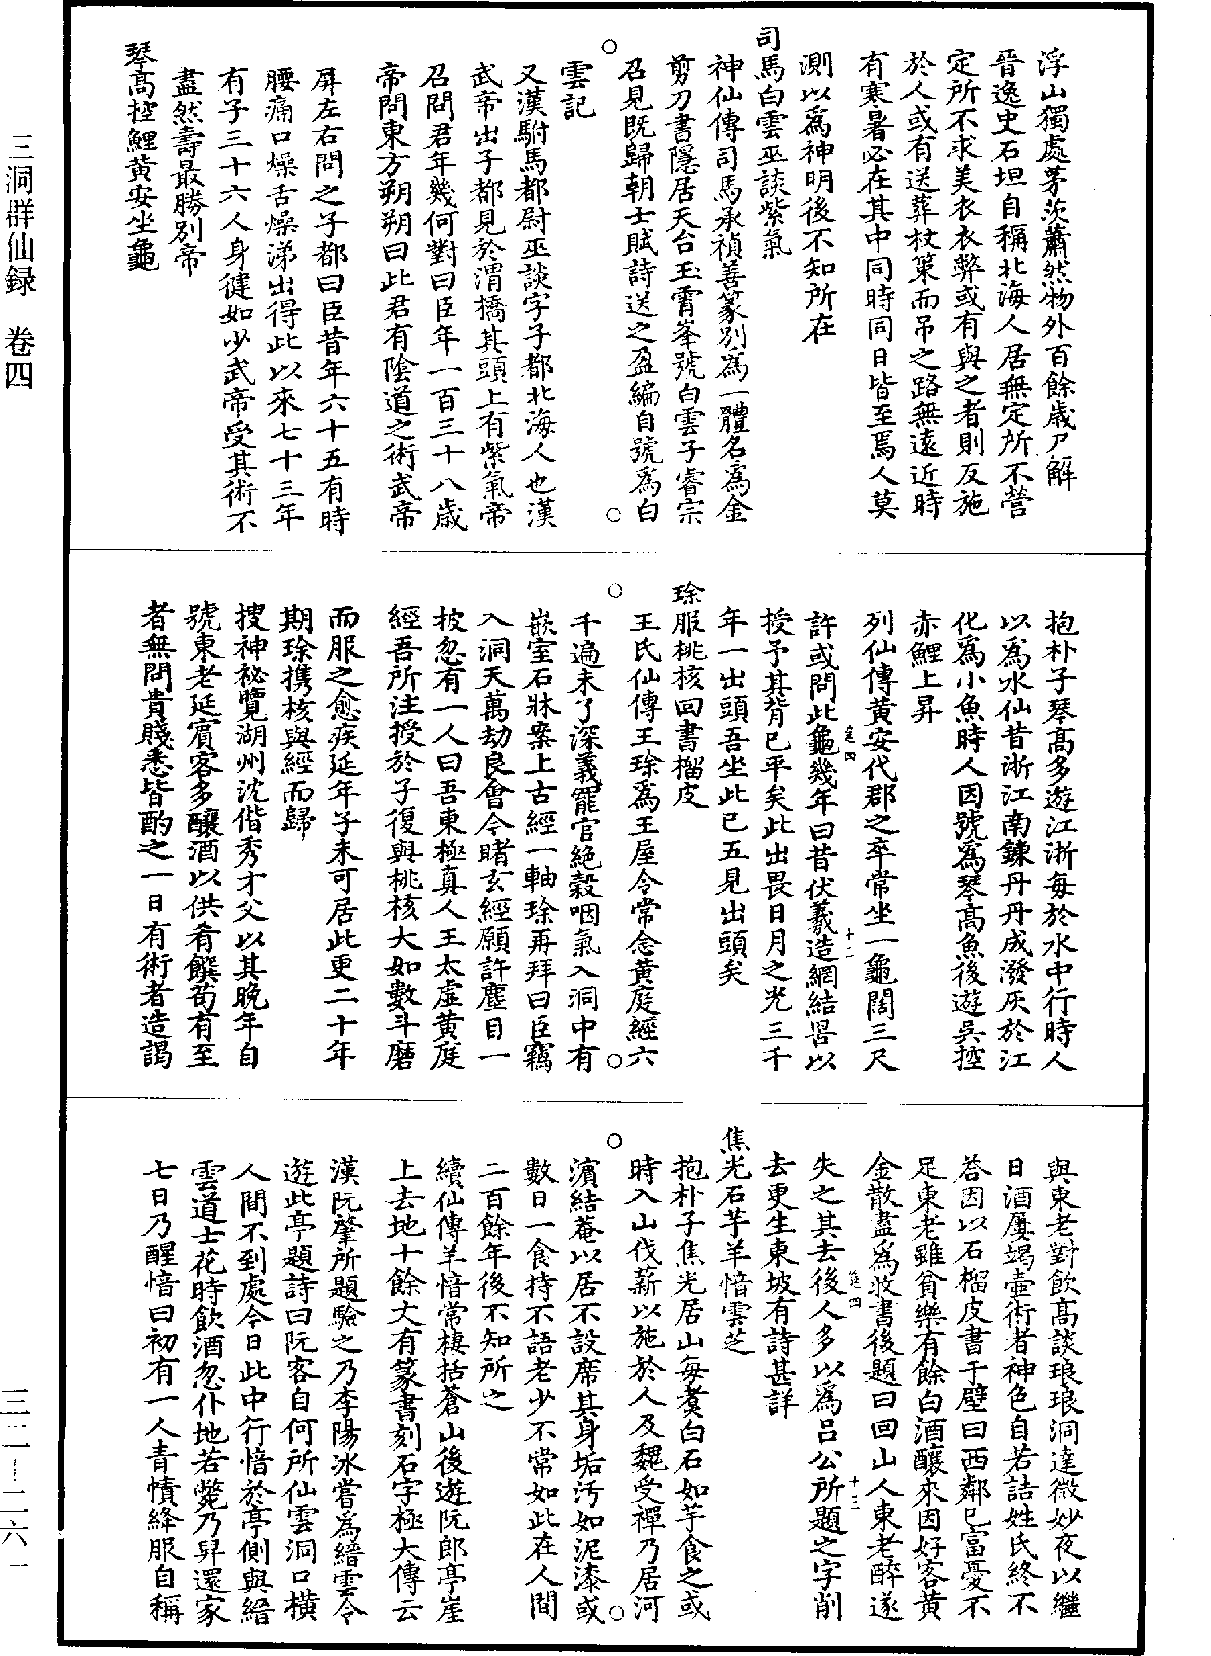 三洞群仙録　卷四
浮山獨處茅茨蕭然物外百餘歲尸解
晉逸史石坦自稱北海人居無定所不營
定所不求美衣衣弊或有與之者則反施
於人或有送葬杖策而吊之路無遠近時
有寒暑必在其中同時同日皆至焉人莫
測以爲神明後不知所在
司馬白雲巫談紫氣
神仙傳司馬承禎善篆別爲一體名爲金
剪刀書隱居天台玉霄峯號白雲子睿宗
召見旣歸朝士賦詩送之盈編自號爲白
雲記
又漢駙馬都尉巫談字子都北海人也漢
武帝出子都見於渭橋其頭上有紫氣帝
召問君年幾何對曰臣年一百三十八歲
帝問東方朔朔曰此君有陰道之術武帝
屏左右問之子都曰臣昔年六十五有時
腰痛口燥舌燥涕出得此以來七十三年
有子三十六人身健如少武帝受其術不
盡然壽最勝別帝
琴高控鯉黃安坐龜
抱朴子琴高多遊江浙每於水中行時人
以爲水仙昔浙江南鍊丹丹成潑灰於江
化爲小魚時人因號爲琴高魚後遊吳控
赤鯉上昇
列仙傳黃安代郡之卒常坐一龜闊三尺
許或問此龜幾年曰昔伏羲造網結罟以
授予其背已平矣此出畏日月之光三千
年一出頭吾坐此已五見出頭矣
珎服桃核回書榴皮
王氏仙傳王珎爲王屋令常念黃庭經六
千遍未了深義罷官絶穀咽氣入洞中有
嵌室石牀案上古經一軸珎再拜曰臣竊
入洞天萬劫良會今睹玄經願許塵目一
披忽有一人曰吾東極真人王太虛黃庭
經吾所注授於子復與桃核大如數斗磨
而服之愈疾延年子未可居此更二十年
期珎携核與經而歸
搜神祕覽湖州沈偕秀才父以其晚年自
號東老延賓客多釀酒以供肴饌苟有至
者無問貴賤悉皆酌之一日有術者造謁
與東老對飲高談琅琅洞達微妙夜以繼
日酒屢竭壷術者神色自若詰姓氏終不
荅因以石榴皮書于壁曰西鄰已富憂不
足東老雖貧樂有餘白酒釀來因好客黃
金散盡爲收書後題曰回山人東老醉遂
失之其去後人多以爲呂公所題之字削
去更生東坡有詩甚詳
焦光石芋羊愔雲芝
抱朴子焦光居山每煑白石如芋食之或
時入山伐薪以施於人及魏受禪乃居河
濵結菴以居不設席其身垢污如泥漆或
數日一食持不語老少不常如此在人間
二百餘年後不知所之
續仙傳羊愔常棲括蒼山後遊阮郎亭崖
上去地十餘丈有篆書刻石字極大傳云
漢阮肇所題驗之乃李陽冰嘗爲縉雲令
遊此亭題詩曰阮客自何所仙雲洞口橫
人間不到處今日此中行愔於亭側與縉
雲道士花時飲酒忽仆地若斃乃舁還家
七日乃醒愔曰初有一人青幘絳服自稱
三二—二六一